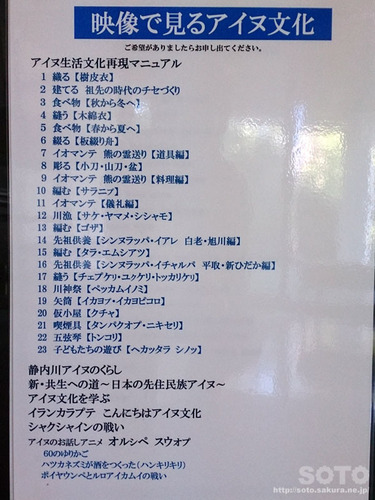 映像で見るアイヌ文化
ご希望がありましたらお申し出てください。
アイヌ生活文化再現マニュアル
1 織る【樹皮衣】
2 建てる 祖先の時代のチセづくり
3 食べ物【秋から冬へ】
4 縫う【木綿衣】
5 食べ物【春から夏へ】
6 綴る【板綴り舟】
7 イオマンテ 熊の霊送り【道具編】
8 彫る【小刀・山刀・盆】
9 イオマンテ 熊の霊送り【料理編】
10 編む【サラニㇷ゚】
11 イオマンテ【儀礼編】
12 川漁【サケ・ヤマメ・シシャモ】
13 編む【ゴザ】
14 先祖供養【シンヌラッパ・イアレ 白老・旭川編】
15 編む【タラ・エムシアツ】
16 先祖供養【シンヌラッパ・イチャルパ 平取・新ひだか編】
17 縫う【チェㇷ゚ケリ・ユㇰケリ・トッカリケリ】
18 川神祭【ペッカムイノミ】
19 矢筒【イカヨㇷ゚・イカヨピコロ】
20 仮小屋【クチャ】
21 喫煙具【タンパクオㇷ゚・ニキセリ】
22 五弦琴【トンコリ】
23 子どもたちの遊び【ヘカッタラ シノッ】
静内川アイヌのくらし
新・共生への道～日本の先住民族アイヌ～
アイヌ文化を学ぶ
イランカラプテ こんにちはアイヌ文化
シャクシャインの戦い
アイヌのお話しアニメ オルシペ スウオㇷ゚
60のゆりかご
ハツカネズミが酒をつくった(ハンキリキリ)
ポイヤウンペとルロアイカムイの戦い
SOTO
http://soto.sakura.ne.jp/